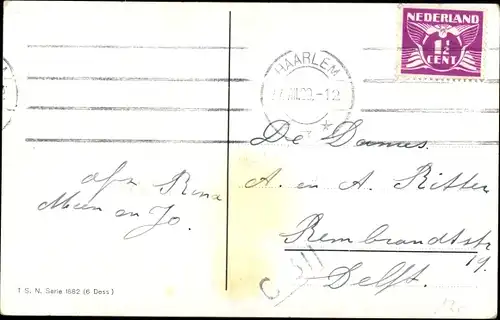 NEDERLAND
1½
CENT
HAARLEM
-12
De Dames
A. en A. Ritter
Rembrandtstr
19.
Delft.
afz. Rina
Mien en Jo.
T. S. N. Serie 1682 (6 Dess)